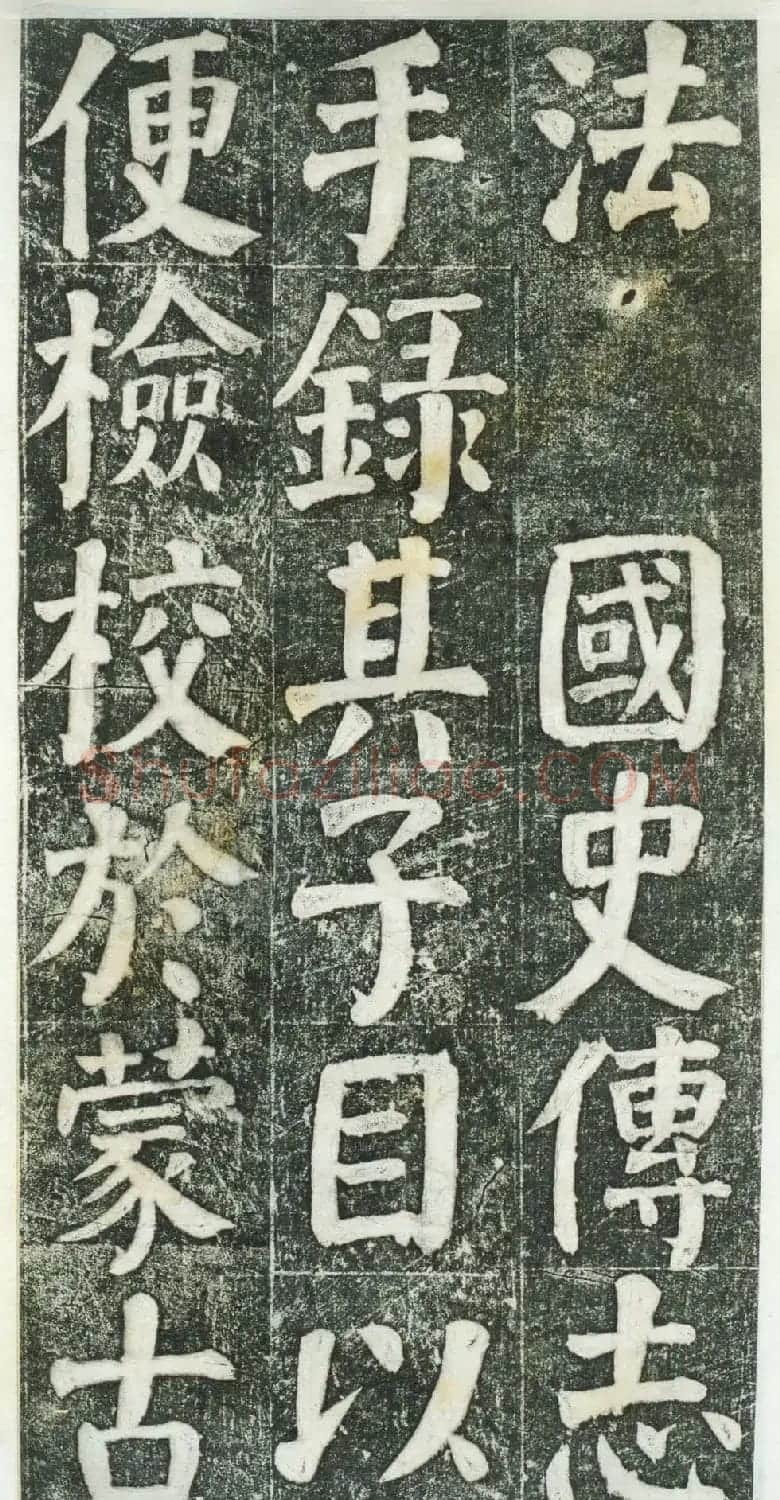 法 國史傳志
手録其子目以
便檢校於蒙古
shufaziliao.com